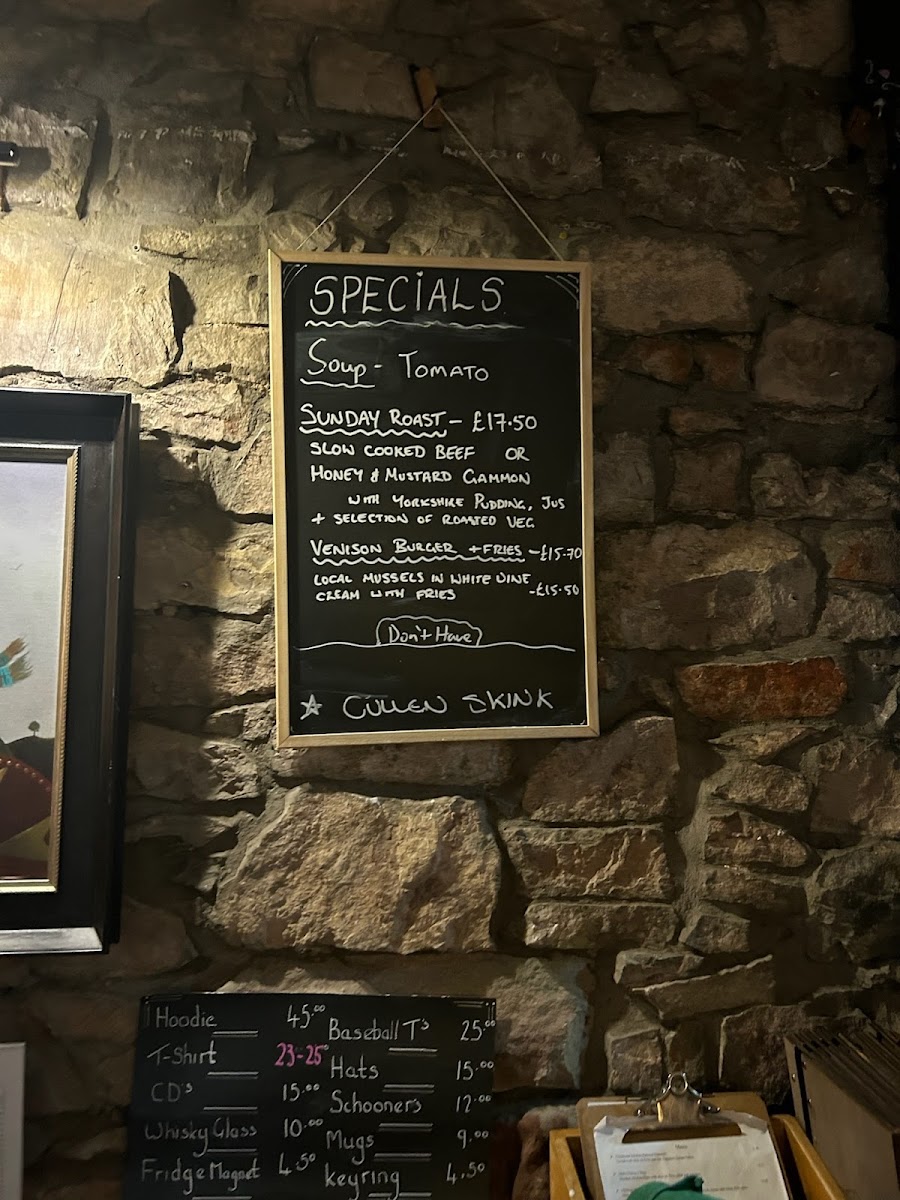 SPECIALS
Soup - TOMATO
SUNDAY ROAST - £17.50
SLOW COOKED BEEF OR
HONEY & MUSTARD GAMMON
WITH YORKSHIRE PUDDING, JUS
+ SELECTION OF ROASTED VEG
VENISON BURGER + FRIES - £15.70
LOCAL MUSSELS IN WHITE WINE
CREAM WITH FRIES - £15.50
Don't Have
☆ CULLEN SKINK
Hoodie 45.00
T-Shirt 23-25°
CD's 15.00
Whisky Glass 10.00
Fridge Magnet 4.50
Baseball T's 25.00
Hats 15.00
Schooners 12.00
Mugs 9.00
Keyring 4.50